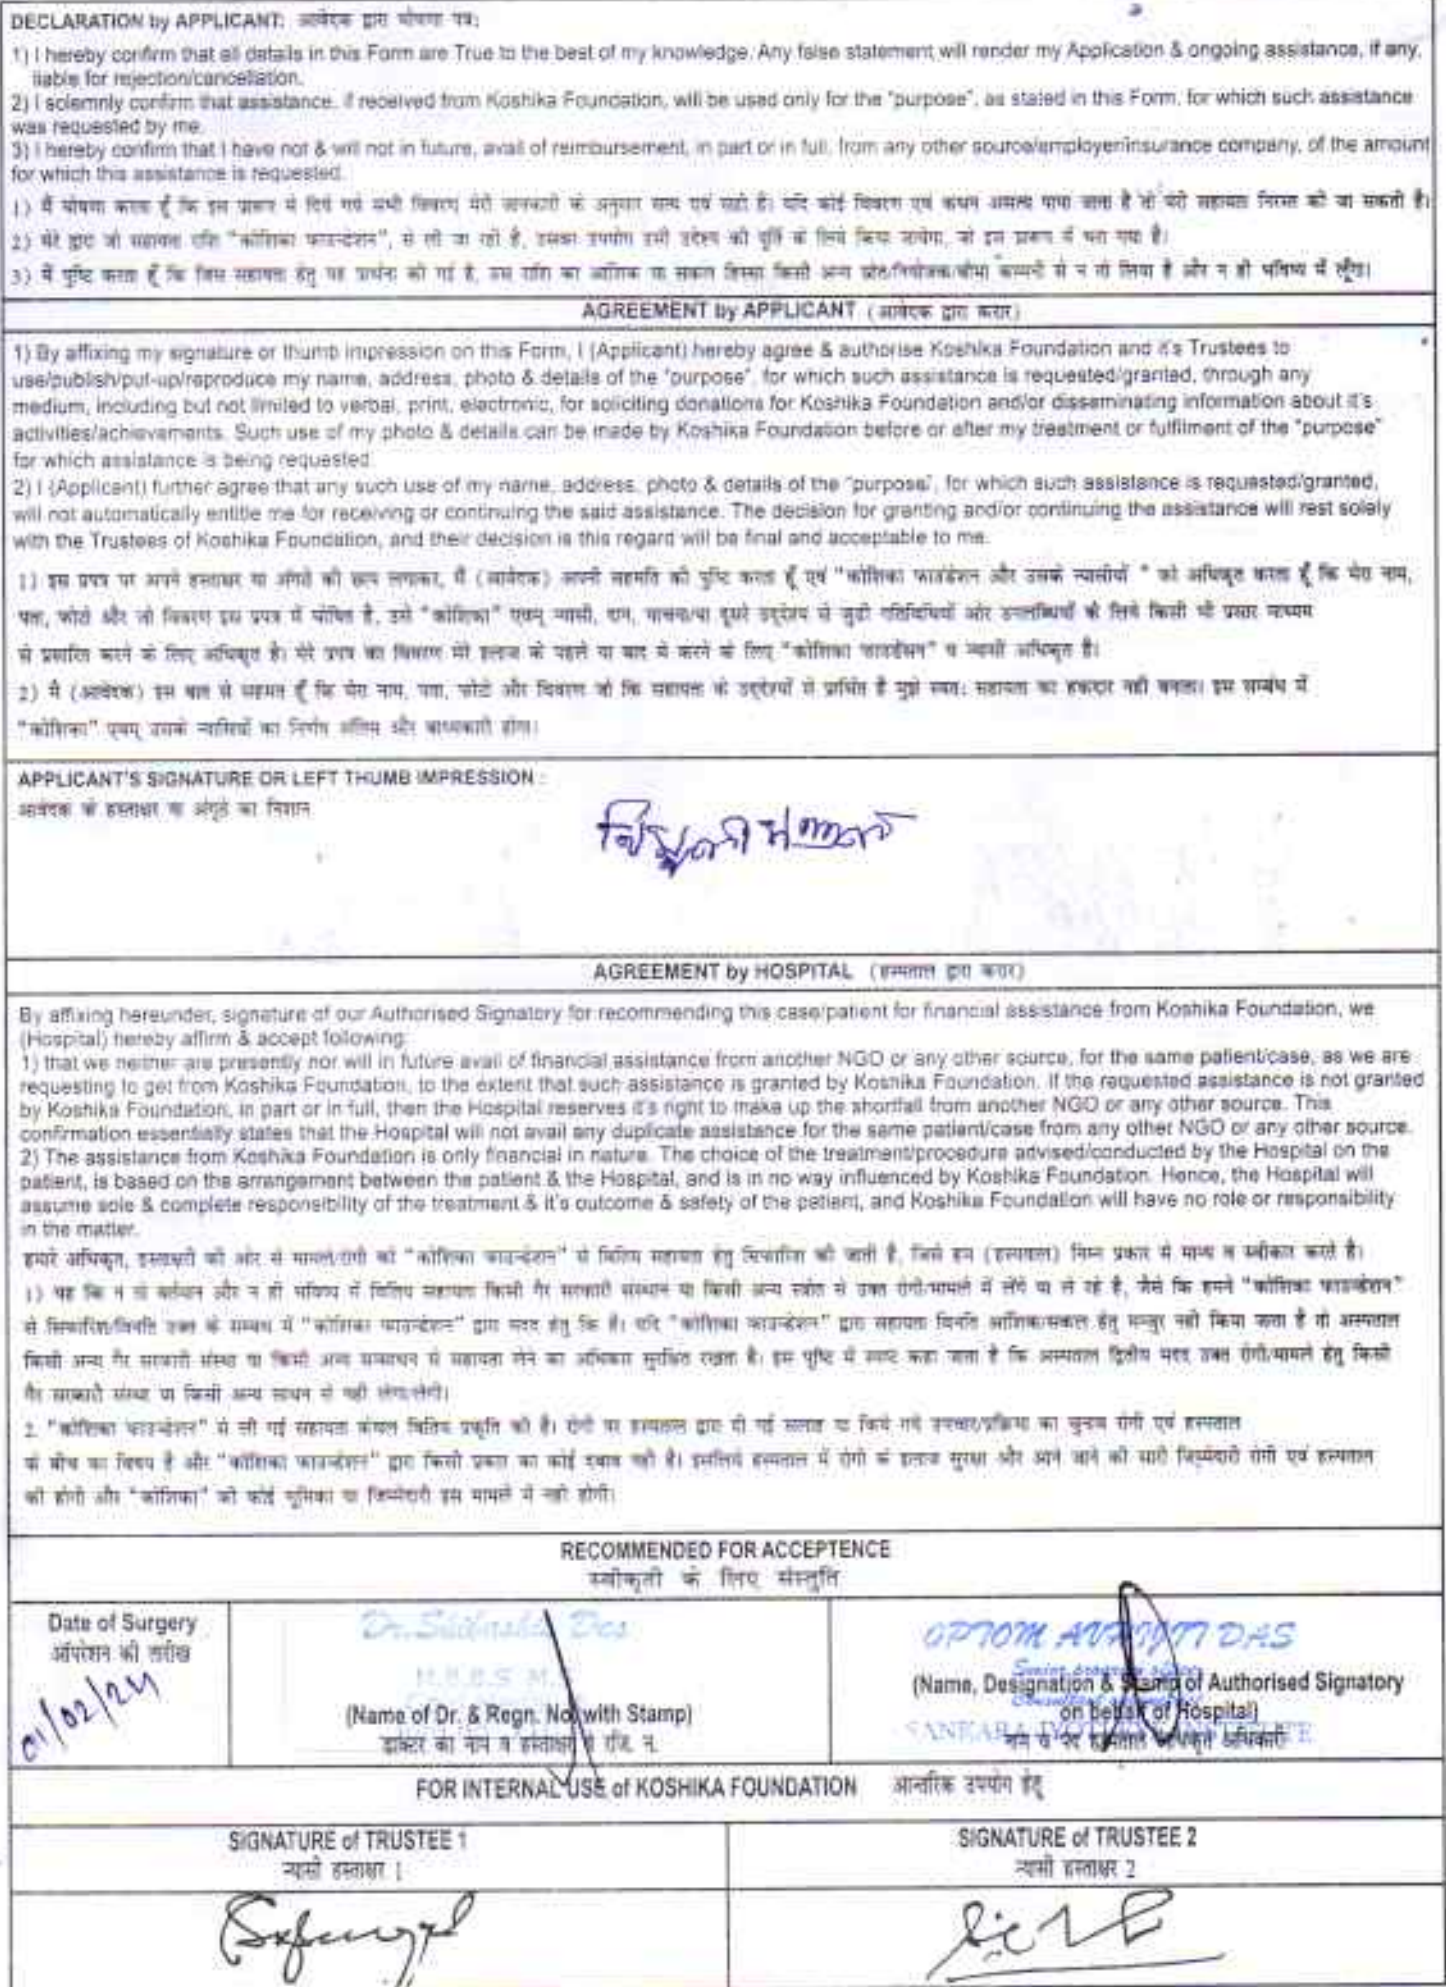 DECLARATION by APPLICANT: आवेदक द्वारा घोषणा पत्र:
1) I hereby confirm that all details in this Form are True to the best of my knowledge. Any false statement will render my Application & ongoing assistance, if any,
liable for rejection/cancellation.
2) I solemnly confirm that assistance, if received from Koshika Foundation, will be used only for the "purpose", as stated in this Form, for which such assistance
was requested by me.
3) I hereby confirm that I have not & will not in future, avail of reimbursement, in part or in full, from any other source/employer/insurance company, of the amount
for which this assistance is requested.
1) मैं घोषणा करता हूँ कि इस प्रारूप में दिये गये सभी विवरण मेरी जानकारी के अनुसार सत्य एवं सही है। यदि कोई विवरण एवं कथन असत्य पाया जाता है तो मेरी सहायता निरस्त की जा सकती है।
2) मेरे द्वारा जो सहायता राशि "कोशिका फाउन्डेशन", से ली जा रही है, उसका उपयोग उसी उद्देश्य की पूर्ति के लिये किया जायेगा, जो इस प्रारूप में भरा गया है।
3) मैं पुष्टि करता हूँ कि जिस सहायता हेतु यह प्रार्थना की गई है, उस राशि का आंशिक या सकल हिस्सा किसी अन्य स्रोत/नियोजक/बीमा कम्पनी से न तो लिया है और न ही भविष्य में लूँगा।
AGREEMENT by APPLICANT (आवेदक द्वारा करार)
1) By affixing my signature or thumb impression on this Form, I (Applicant) hereby agree & authorise Koshika Foundation and it's Trustees to
use/publish/put-up/reproduce my name, address, photo & details of the "purpose", for which such assistance is requested/granted, through any
medium, including but not limited to verbal, print, electronic, for soliciting donations for Koshika Foundation and/or disseminating information about it's
activities/achievements. Such use of my photo & details can be made by Koshika Foundation before or after my treatment or fulfilment of the "purpose"
for which assistance is being requested.
2) I (Applicant) further agree that any such use of my name, address, photo & details of the "purpose", for which such assistance is requested/granted,
will not automatically entitle me for receiving or continuing the said assistance. The decision for granting and/or continuing the assistance will rest solely
with the Trustees of Koshika Foundation, and their decision is this regard will be final and acceptable to me.
1) इस प्रपत्र पर अपने हस्ताक्षर या अंगूठे की छाप लगाकर, मैं (आवेदक) अपनी सहमति की पुष्टि करता हूँ एवं "कोशिका फाउंडेशन और उसके न्यासीयों " को अधिकृत करता हूँ कि मेरा नाम,
पता, फोटो और जो विवरण इस प्रपत्र में घोषित है, उसे "कोशिका" एवम् न्यासी, दान, याचना/या दूसरे उद्देश्य से जुड़ी गतिविधियों और उपलब्धियों के लिये किसी भी प्रसार माध्यम
से प्रसारित करने के लिए अधिकृत है। मेरे प्रपत्र का विवरण मेरे इलाज के पहले या बाद में करने के लिए "कोशिका फाउंडेशन" व न्यासी अधिकृत है।
2) मैं (आवेदक) इस बात से सहमत हूँ कि मेरा नाम, पता, फोटो और विवरण जो कि सहायता के उद्देश्यों से प्रार्थित है मुझे स्वत: सहायता का हकदार नही बनाता। इस सम्बंध में
"कोशिका" एवम् उसके न्यासियों का निर्णय अंतिम और बाध्यकारी होगा।
APPLICANT'S SIGNATURE OR LEFT THUMB IMPRESSION :
आवेदक के हस्ताक्षर या अंगूठे का निशान
AGREEMENT by HOSPITAL (हस्पताल द्वारा करार)
By affixing hereunder, signature of our Authorised Signatory for recommending this case/patient for financial assistance from Koshika Foundation, we
(Hospital) hereby affirm & accept following:
1) that we neither are presently nor will in future avail of financial assistance from another NGO or any other source, for the same patient/case, as we are
requesting to get from Koshika Foundation, to the extent that such assistance is granted by Koshika Foundation. If the requested assistance is not granted
by Koshika Foundation, in part or in full, then the Hospital reserves it's right to make up the shortfall from another NGO or any other source. This
confirmation essentially states that the Hospital will not avail any duplicate assistance for the same patient/case from any other NGO or any other source.
2) The assistance from Koshika Foundation is only financial in nature. The choice of the treatment/procedure advised/conducted by the Hospital on the
patient, is based on the arrangement between the patient & the Hospital, and is in no way influenced by Koshika Foundation. Hence, the Hospital will
assume sole & complete responsibility of the treatment & it's outcome & safety of the patient, and Koshika Foundation will have no role or responsibility
in the matter.
हमारे अधिकृत, हस्ताक्षरी की ओर से मामले/रोगी को "कोशिका फाउन्डेशन" से वित्तिय सहायता हेतु सिफारिश की जाती है, जिसे हम (हस्पताल) निम्न प्रकार से मान्य व स्वीकार करते है।
1) यह कि न तो वर्तमान और न ही भविष्य में वित्तिय सहायता किसी गैर सरकारी संस्थान या किसी अन्य स्त्रोत से उक्त रोगी/मामले में लेंगे या ले रहे है, जैसे कि हमने "कोशिका फाउन्डेशन"
से सिफारिश/विनति उक्त के सम्बन्ध में "कोशिका फाउन्डेशन" द्वारा मदद हेतु कि है। यदि "कोशिका फाउन्डेशन" द्वारा सहायता विनति आंशिक/सकल हेतु मन्जुर नही किया जाता है तो अस्पताल
किसी अन्य गैर सरकारी संस्था या किसी अन्य संसाधन से सहायता लेने का अधिकार सुरक्षित रखता है। इस पुष्टि में स्पष्ट कहा जाता है कि अस्पताल द्वितीय मदद उक्त रोगी/मामले हेतु किसी
गैर सरकारी संस्था या किसी अन्य साधन से नही लेगा/लेगी।
2. "कोशिका फाउन्डेशन" से ली गई सहायता केवल वित्तिय प्रकृति की है। रोगी पर हस्पताल द्वारा दी गई सलाह या किये गये उपचार/प्रक्रिया का चुनाव रोगी एवं हस्पताल
के बीच का विषय है और "कोशिका फाउन्डेशन" द्वारा किसी प्रकार का कोई दबाव नही है। इसलिये हस्पताल में रोगी के इलाज सुरक्षा और आने जाने की सारी जिम्मेदारी रोगी एवं हस्पताल
की होगी और "कोशिका" की कोई भूमिका या जिम्मेदारी इस मामले में नही होगी।
RECOMMENDED FOR ACCEPTENCE
स्वीकृती के लिए संस्तुति
Date of Surgery
ऑपरेशन की तारीख
01/02/24
Dr. Das
M.B.B.S
(Name of Dr. & Regn. No. with Stamp)
डाक्टर का नाम व हस्ताक्षर रजि. न.
OPTOM AVHIJIT DAS
(Name, Designation & Stamp of Authorised Signatory
on behalf of Hospital)
SANKARA
नाम व पद हस्पताल अधिकृत अधिकारी
FOR INTERNAL USE of KOSHIKA FOUNDATION आन्तरिक उपयोग हेतु
SIGNATURE of TRUSTEE 1
न्यासी हस्ताक्षर 1
SIGNATURE of TRUSTEE 2
न्यासी हस्ताक्षर 2